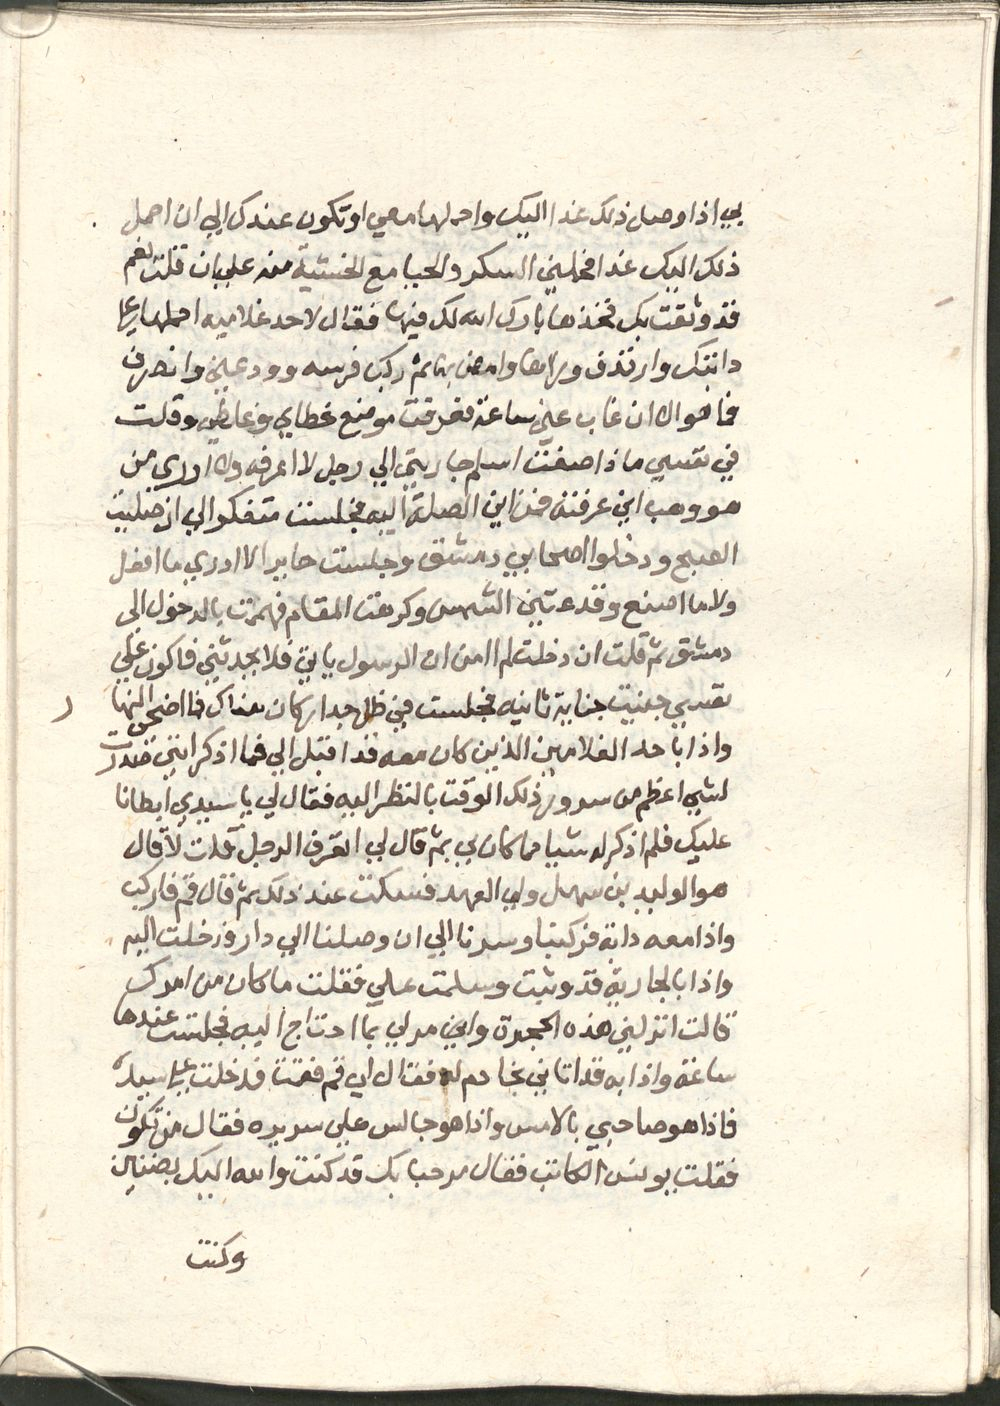 بي اذا وصل ذلك غدا اليك واحملها معي او تكون عندك الي ان احمل
ذلك اليك غدا فحملني السكر والحيا مع الخشية منه علي ان قلت نعم
قد وثقت بك فخذها بارك الله لك فيها فقال لاحد غلاميه احملها علي
دابتك وارتدف وراها وامض بها ثم ركب فرسه وودعني وانصرف
فما هو الا ان غاب عني ساعة فعرفت موضع خطاي وغلطي وقلت
في نفسي ماذا صنعت اسلم جاريتي الي رجل لا اعرفه ولا ادري من
هو وهب اني عرفته فمن اين الصلة اليه فجلست متفكرا الي ان صليت
الصبح ودخلوا اصحابي دمشق وجلست حايرا لا ادري ما افعل
ولا ما اصنع وقد عتني الشمس وكرهت المقام فهممت بالدخول الى
دمشق ثم قلت ان دخلت لم امن ان الرسول ياتي فلا يجدني فاكون علي
نفسي جنيت جناية ثانيه فجلست في ظل جدار كان هناك فلما اضحى النهار
واذا باحد الغلامين الذين كان معه قد اقبل الي فما اذكر انني سررت
لشي اعظم من سروري ذلك الوقت بالنظر اليه فقال لي يا سيدي ابطانا
عليك فلم اذكر له شيا مما كان بي ثم قال لي اتعرف الرجل قلت لا قال
هو الوليد بن سهل ولي العهد فسكت عند ذلك ثم قال قم فاركب
واذا معه دابه فركبنا وسرنا الي ان وصلنا الي دار فدخلت اليه
واذا بالجارية قد وثبت وسلمت علي فقلت ما كان من امرك
قالت انزلني هذه الحجرة وامر لي بما احتاج اليه فجلست عندها
ساعة واذا به قد اتاني بخادم له فقال لي قم فقمت فدخلت علي سيده
فاذا هو صاحبي بالامس واذا هو جالس علي سريره فقال من تكون
فقلت يونس الكاتب فقال مرحبا بك قد كنت والله اليك
وكنت